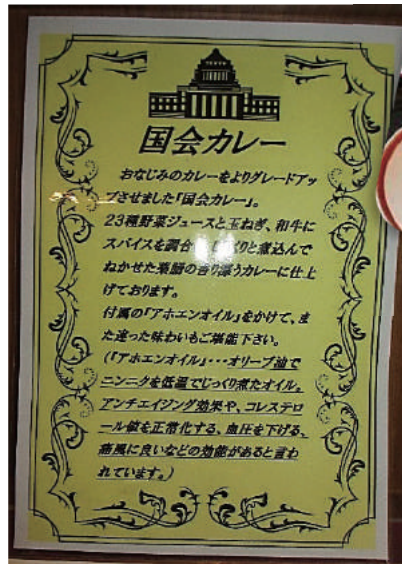 国会カレー
おなじみのカレーをよりグレードアッ
プさせました「国会カレー」。
23種野菜ジュースと玉ねぎ、和牛に
スパイスを調合 じっくりと煮込んで
ねかせた薬膳の香り漂うカレーに仕上
げております。
付属の「アホエンオイル」をかけて、ま
た違った味わいもご堪能下さい。
(「アホエンオイル」・・・オリーブ油で
ニンニクを低温でじっくり煮たオイル。
アンチエイジング効果や、コレステロ
ール値を正常化する、血圧を下げる、
痛風に良いなどの効能があると言わ
れています。)